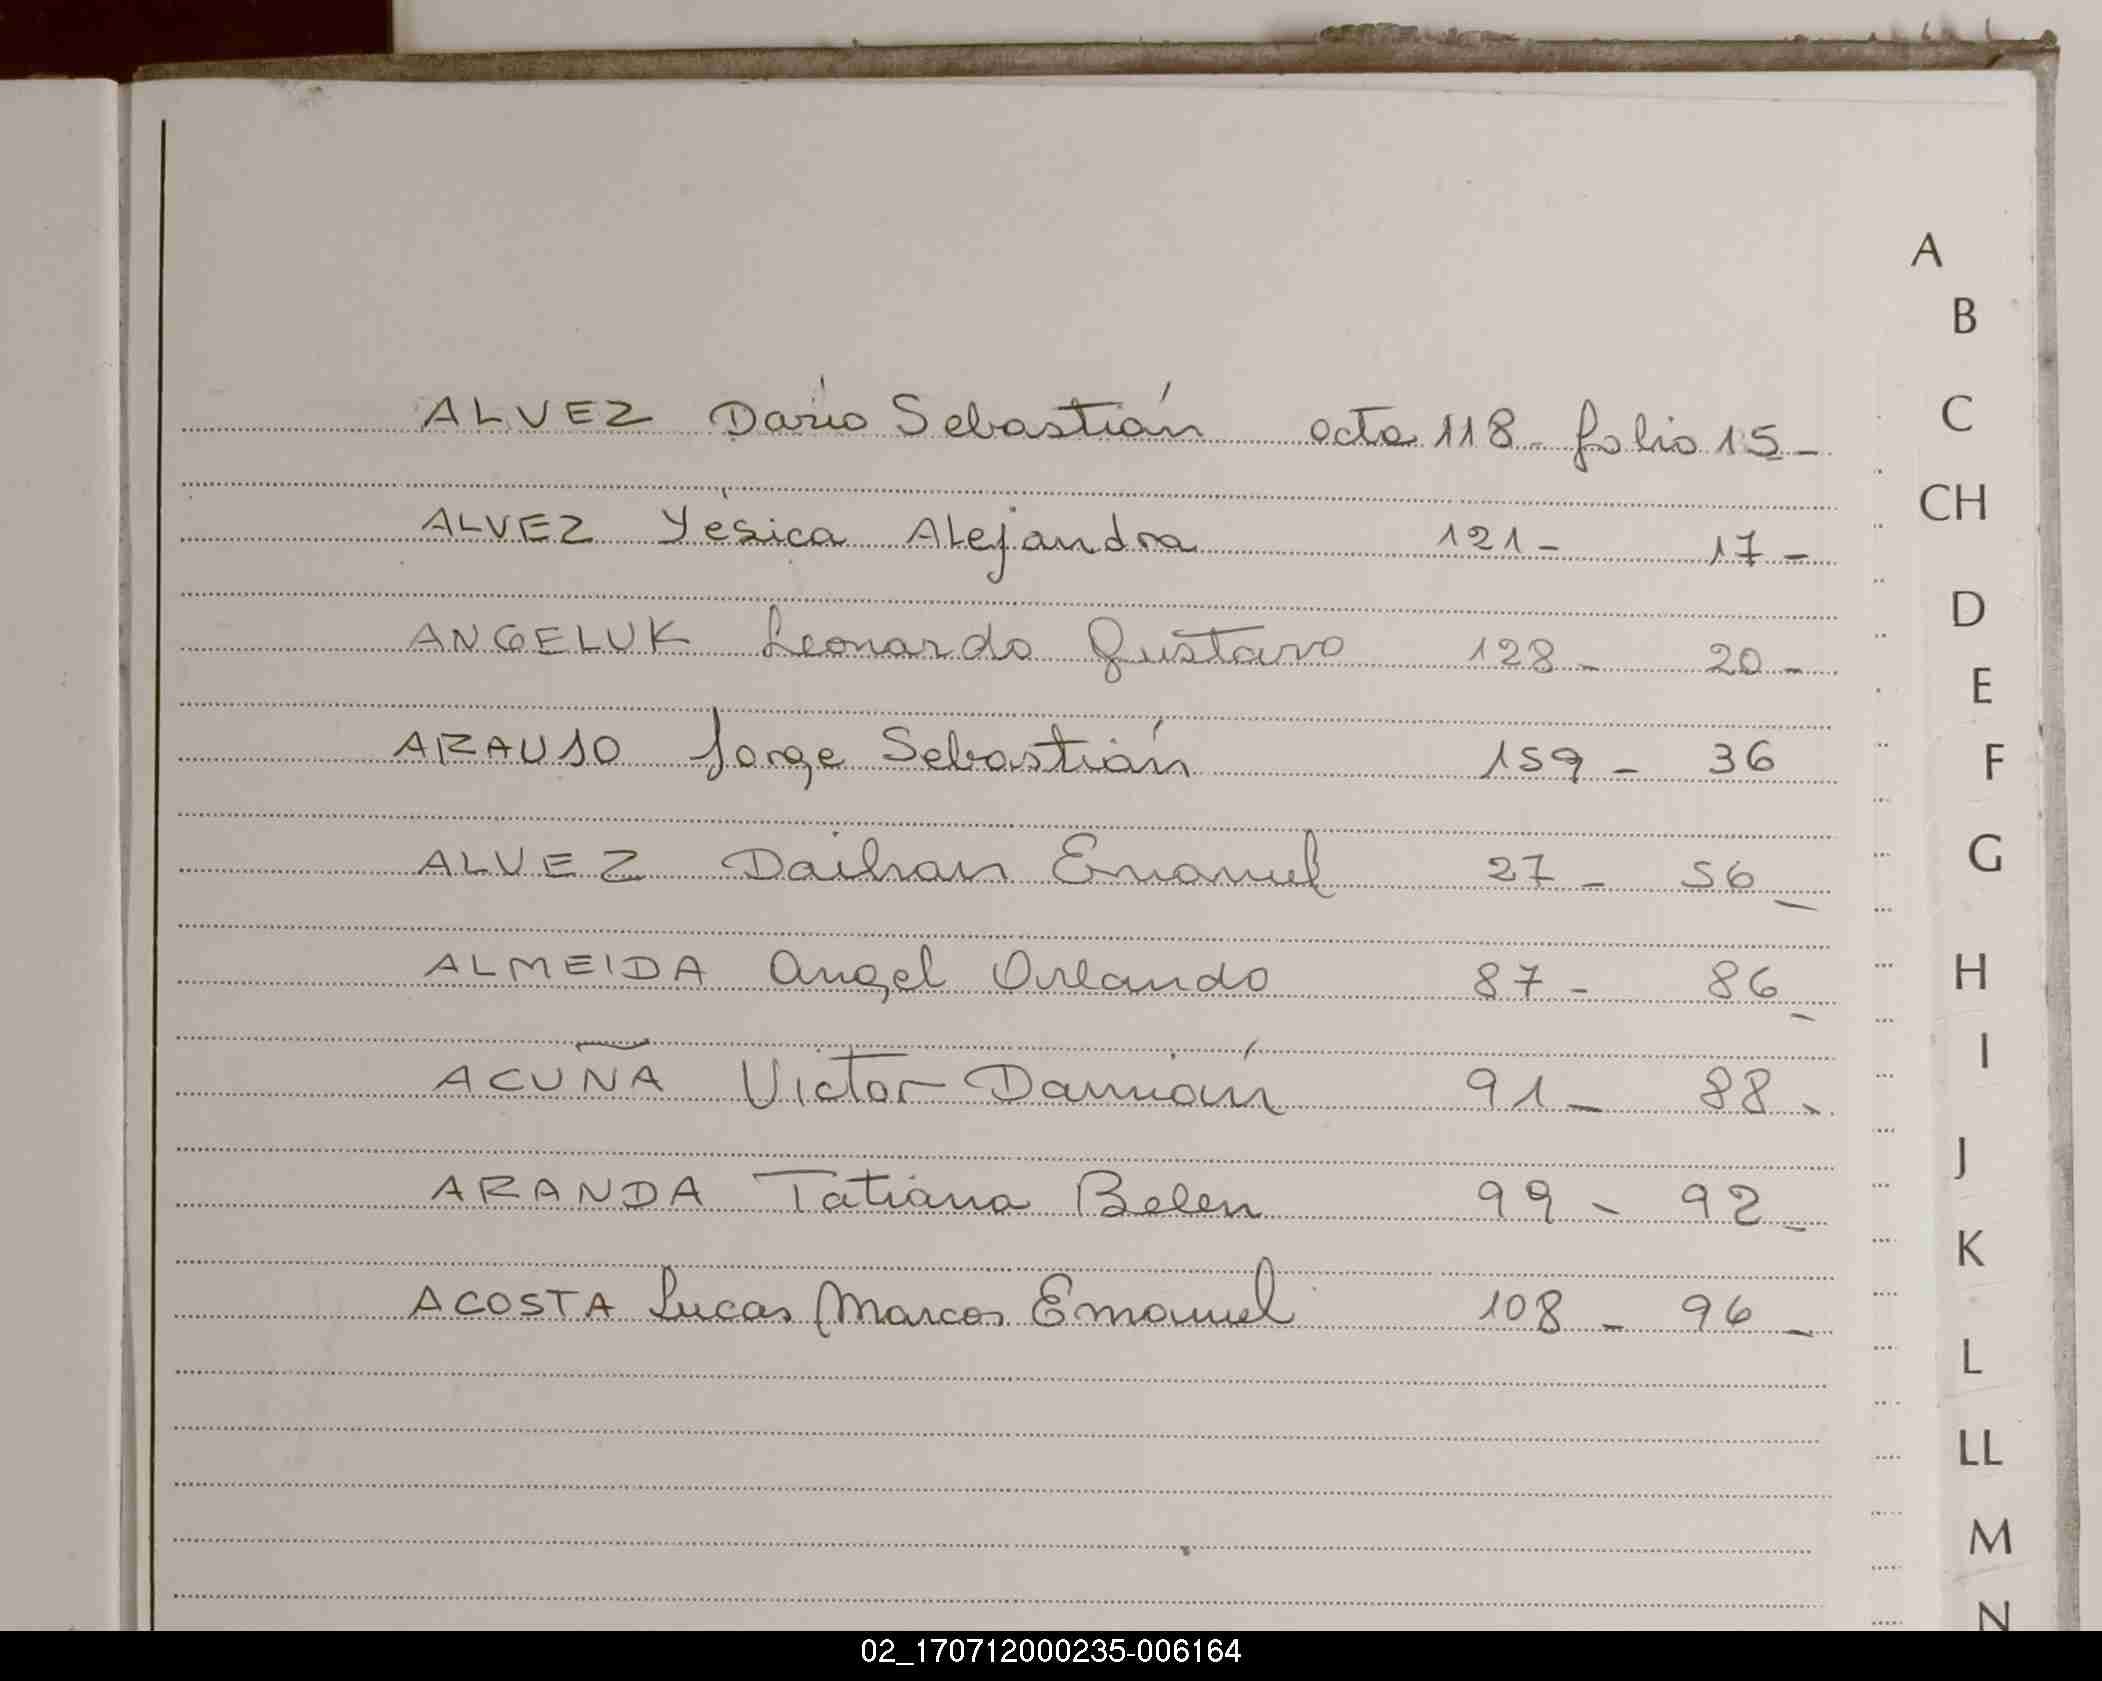 ALVEZ Darío Sebastián acta 118 - folio 15 -
ALVEZ Yésica Alejandra 121 - 17 -
ANGELUK Leonardo Gustavo 128 - 20 -
ARAUJO Jorge Sebastián 159 - 36
ALVEZ Emanuel 27 - 56 -
ALMEIDA Angel Orlando 87 - 86 -
ACUÑA Victor Damián 91 - 88 -
ARANDA Tatiana Belen 99 - 92 -
ACOSTA Lucas Marcos Emanuel 108 - 96 -
A
B
C
CH
D
E
F
G
H
I
J
K
L
LL
M
N
02_170712000235-006164